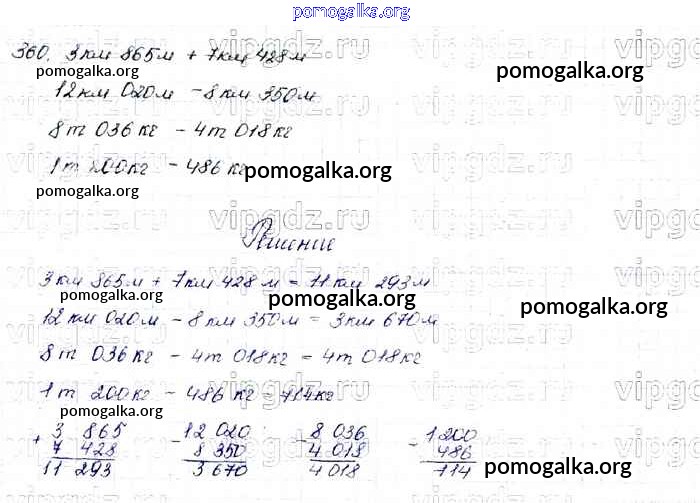 pomogalka.org
360. 3 км 865 м + 7 км 428 м
pomogalka.org
pomogalka.org
12 км 020 м - 8 км 350 м
8 т 036 кг - 4 т 018 кг
1 т 200 кг - 486 кг
pomogalka.org
pomogalka.org
vipgdz.ru
Решение
3 км 865 м + 7 км 428 м = 11 км 293 м
pomogalka.org
pomogalka.org
pomogalka.org
12 км 020 м - 8 км 350 м = 3 км 670 м
8 т 036 кг - 4 т 018 кг = 4 т 018 кг
1 т 200 кг - 486 кг = 714 кг
pomogalka.org
+ 3 865 - 12 020 - 8 036 - 1200
7 428 8 350 4 018 486
11 293 3 670 4 018 714
pomogalka.org